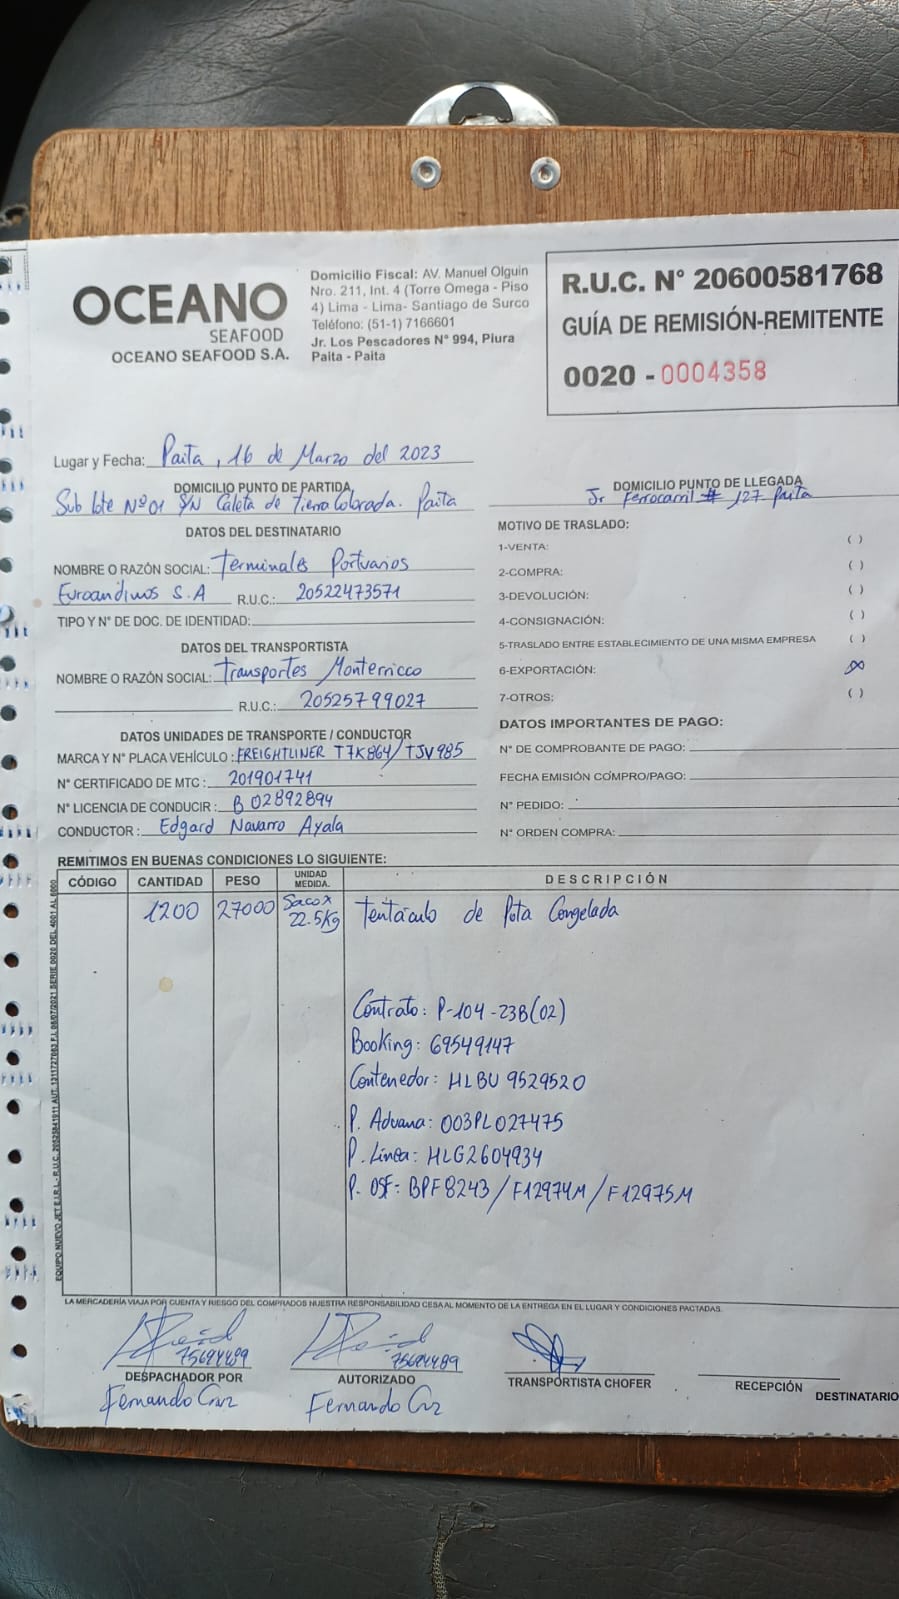 OCEANO
SEAFOOD
OCEANO SEAFOOD S.A.
Domicilio Fiscal: AV. Manuel Olguin
Nro. 211, Int. 4 (Torre Omega - Piso
4) Lima - Lima- Santiago de Surco
Teléfono: (51-1) 7166601
Jr. Los Pescadores N° 994, Piura
Paita - Paita
R.U.C. N° 20600581768
GUÍA DE REMISIÓN-REMITENTE
0020 - 0004358
Lugar y Fecha: Paita, 16 de Marzo del 2023
DOMICILIO PUNTO DE PARTIDA
Sub lote Nº01 S/N Caleta de Tierra Colorada. Paita
DOMICILIO PUNTO DE LLEGADA
Jr Ferrocarril # 127 Paita
DATOS DEL DESTINATARIO
NOMBRE O RAZÓN SOCIAL: Terminales Portuarios
Euroandinos S.A R.U.C.: 20522473571
TIPO Y N° DE DOC. DE IDENTIDAD:
DATOS DEL TRANSPORTISTA
NOMBRE O RAZÓN SOCIAL: Transportes Monterricco
R.U.C.: 20525799027
DATOS UNIDADES DE TRANSPORTE / CONDUCTOR
MARCA Y N° PLACA VEHÍCULO: FREIGHTLINER T7K864/TJV985
N° CERTIFICADO DE MTC: 201901741
N° LICENCIA DE CONDUCIR: B 02892894
CONDUCTOR: Edgard Navarro Ayala
MOTIVO DE TRASLADO:
1-VENTA: ( )
2-COMPRA: ( )
3-DEVOLUCIÓN: ( )
4-CONSIGNACIÓN: ( )
5-TRASLADO ENTRE ESTABLECIMIENTO DE UNA MISMA EMPRESA ( )
6-EXPORTACIÓN: (X)
7-OTROS: ( )
DATOS IMPORTANTES DE PAGO:
N° DE COMPROBANTE DE PAGO:
FECHA EMISIÓN COMPRO/PAGO:
N° PEDIDO:
N° ORDEN COMPRA:
REMITIMOS EN BUENAS CONDICIONES LO SIGUIENTE:
CÓDIGO CANTIDAD PESO UNIDAD MEDIDA. DESCRIPCIÓN
1200 27000 Saco x 22.5Kg Tentáculo de Pota Congelada
Contrato: P-104-23B(02)
Booking: 69549147
Contenedor: HLBU 9529520
P. Aduana: 003PL027475
P. Linea: HLG2604934
P. OSF: BPF8243/F12974M/F12975M
EQUIPO NUEVO JET E.I.R.L - R.U.C. 20525841911 AUT. 1311727063 F.I. 08/07/2021 SERIE 0020 DEL 4001 AL 6000
LA MERCADERÍA VIAJA POR CUENTA Y RIESGO DEL COMPRADOS NUESTRA RESPONSABILIDAD CESA AL MOMENTO DE LA ENTREGA EN EL LUGAR Y CONDICIONES PACTADAS.
75694489
DESPACHADOR POR
Fernando Cruz
75694489
AUTORIZADO
Fernando Cruz
TRANSPORTISTA CHOFER
RECEPCIÓN
DESTINATARIO